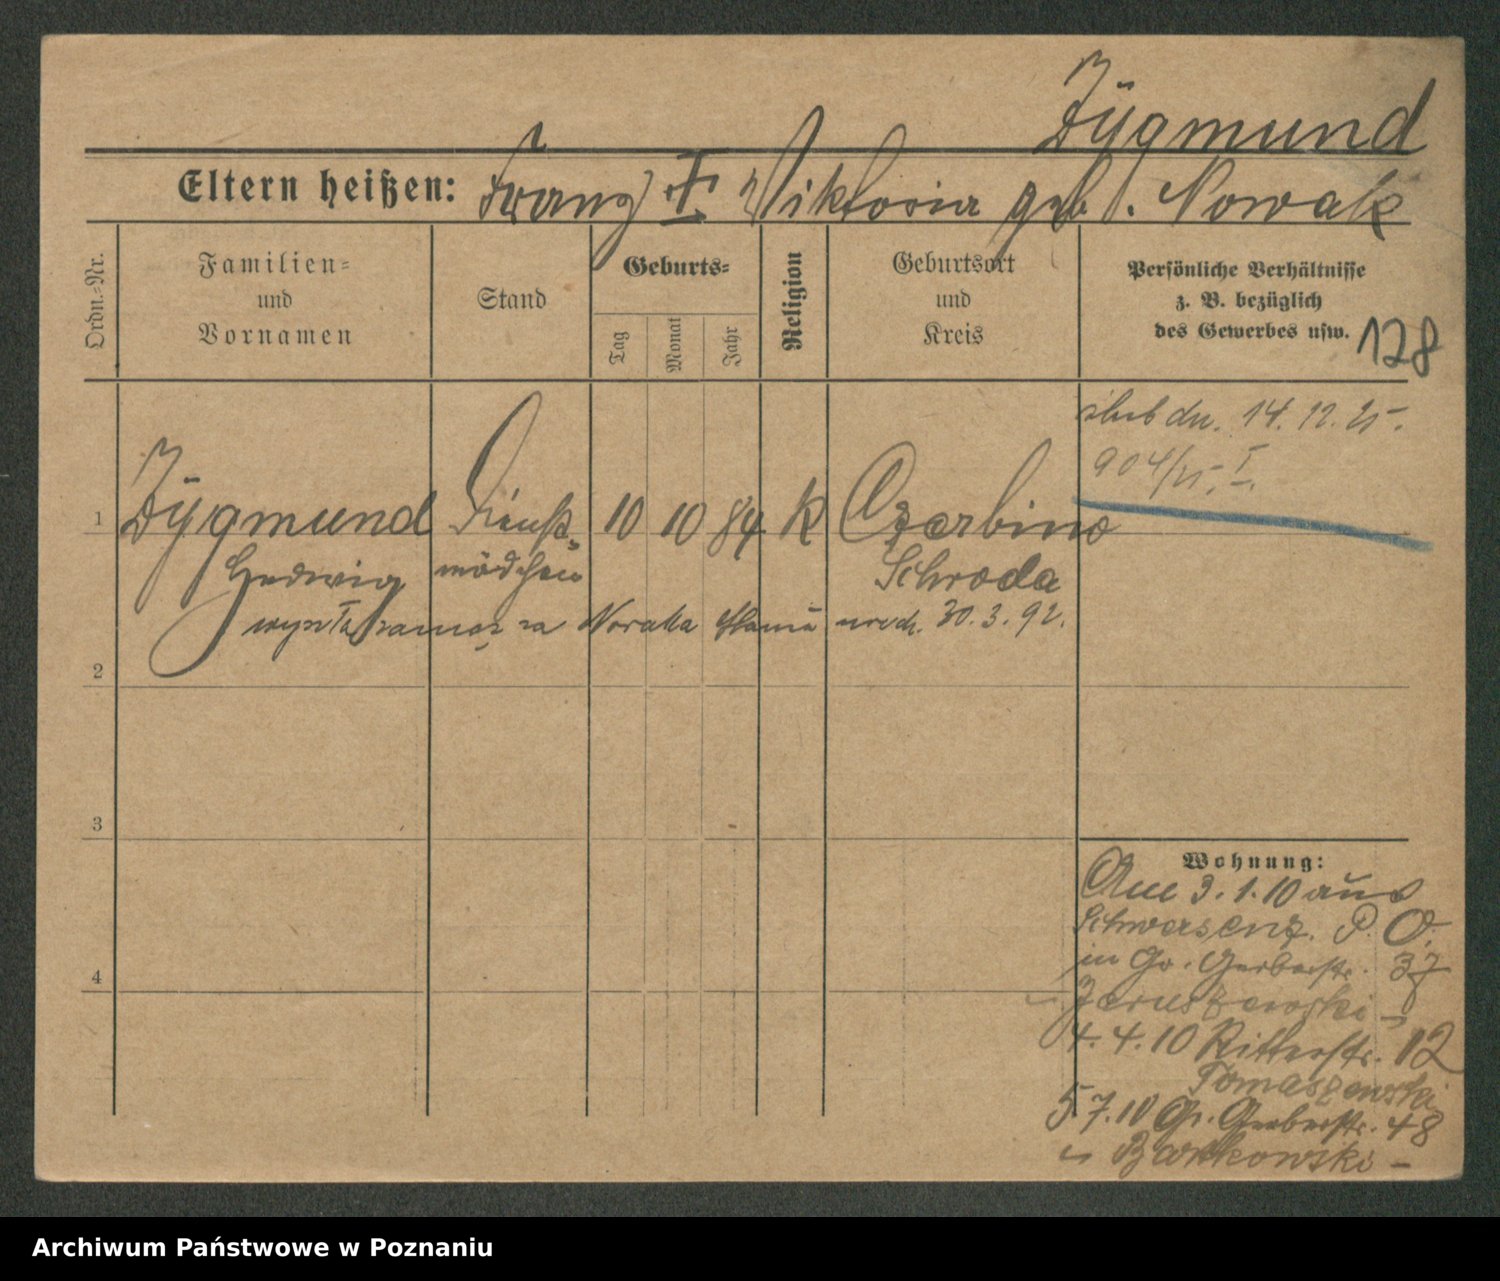 Zygmund
Eltern heißen: Franz Viktoria geb. Nowak
Ordn.-Nr.
Familien-
und
Vornamen
Stand
Geburts-
Tag
Monat
Jahr
Religion
Geburtsort
und
Kreis
Persönliche Verhältnisse
z. B. bezüglich
des Gewerbes usw.
128
ślub dn. 14. 12. 25.
904/25. I.
1 Zygmund Dienst- 10 10 84 K Czerbino
Hedwig mädchen Schroda
wyszła zamąż za Nowaka urodz. 30.3.92.
2
3
4
Wohnung:
Am 3.1.10 aus
Schwersenz. P. O.
in Gr. Gerberstr. 37
Jaruszewski
4.4.10 Ritterstr. 12
Tomaszewski
5.7.10 Gr. Gerberstr. 48
Bartkowski
Archiwum Państwowe w Poznaniu